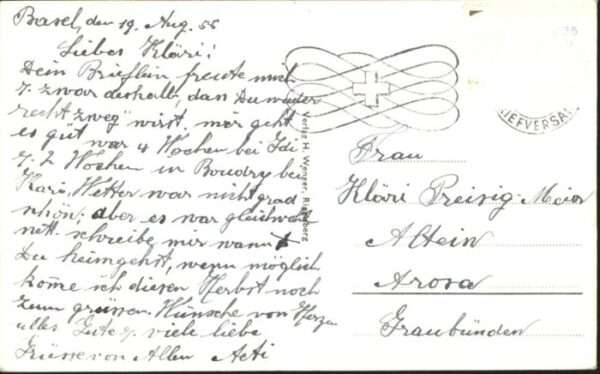 Basel, den 19. Aug. 55
Liebes Kläri!
Dein Brieflein freute mich
u. zwar deshalb, dass Du wieder
recht "zweg" wirst, mir geht
es gut war 4 Wochen bei Idi
u. 2 Wochen in Boudry bei
Karı, Wetter war nicht grad
schön, aber es war gleichwohl
nett. schreibe mir wann
Du heimgehst, wenn möglich
kome ich diesen Herbst noch
zum grüssen. Wünsche von Herzen
alles Gute u. viele liebe
Grüsse von Allen Acti
Verlag H. Wenger, Rigiberg
IEFVERSA
Frau
Kläri Preisig-Meier
Altein
Arosa
Graubünden